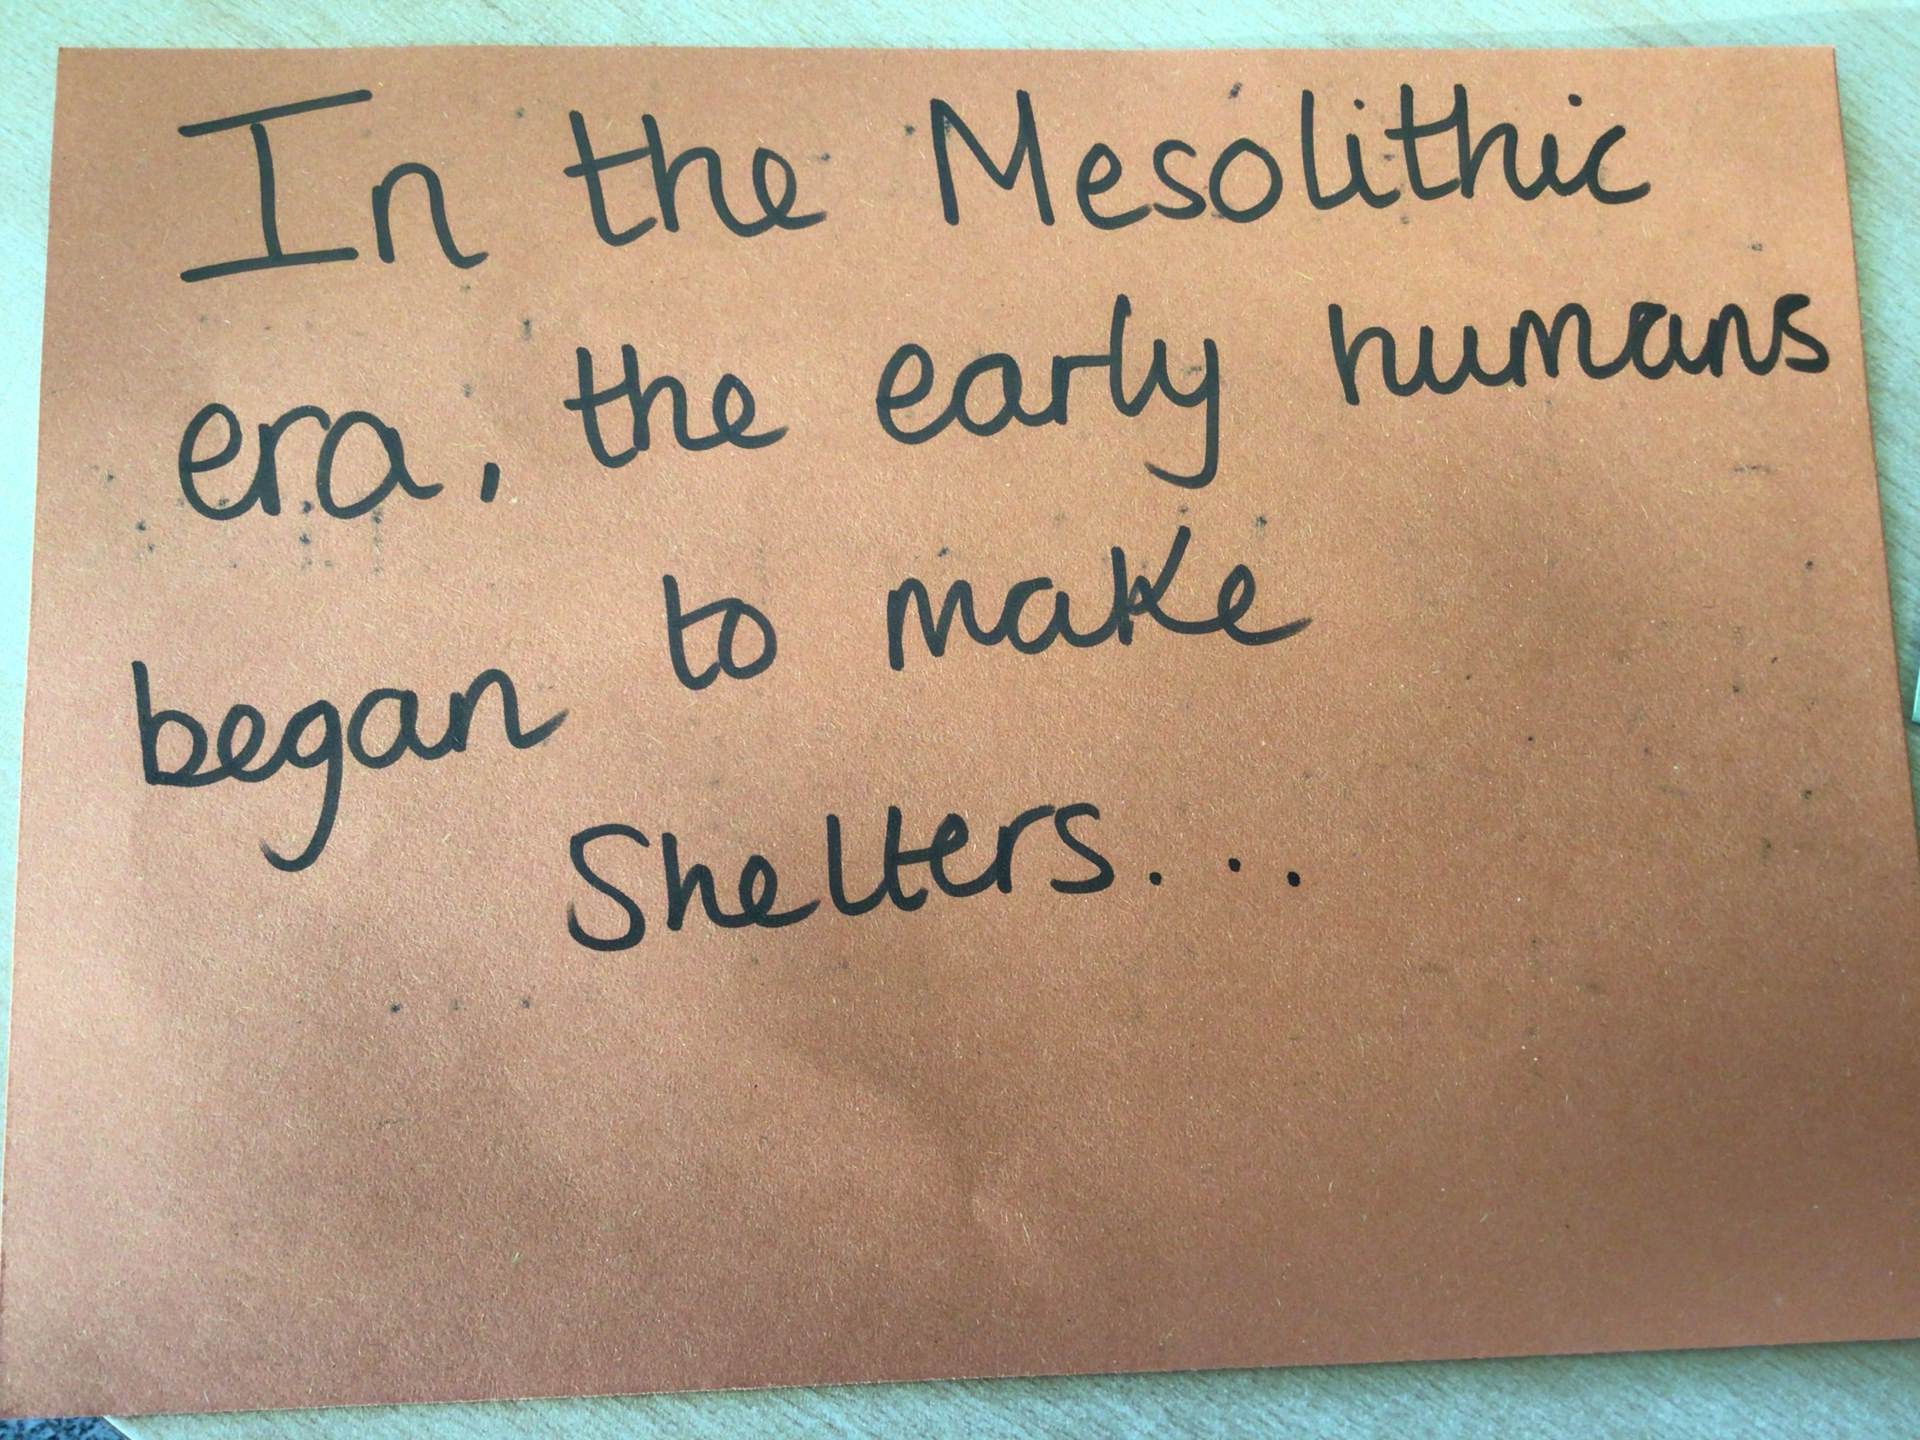 In the Mesolithic
era, the early humans
began to make
Shelters...